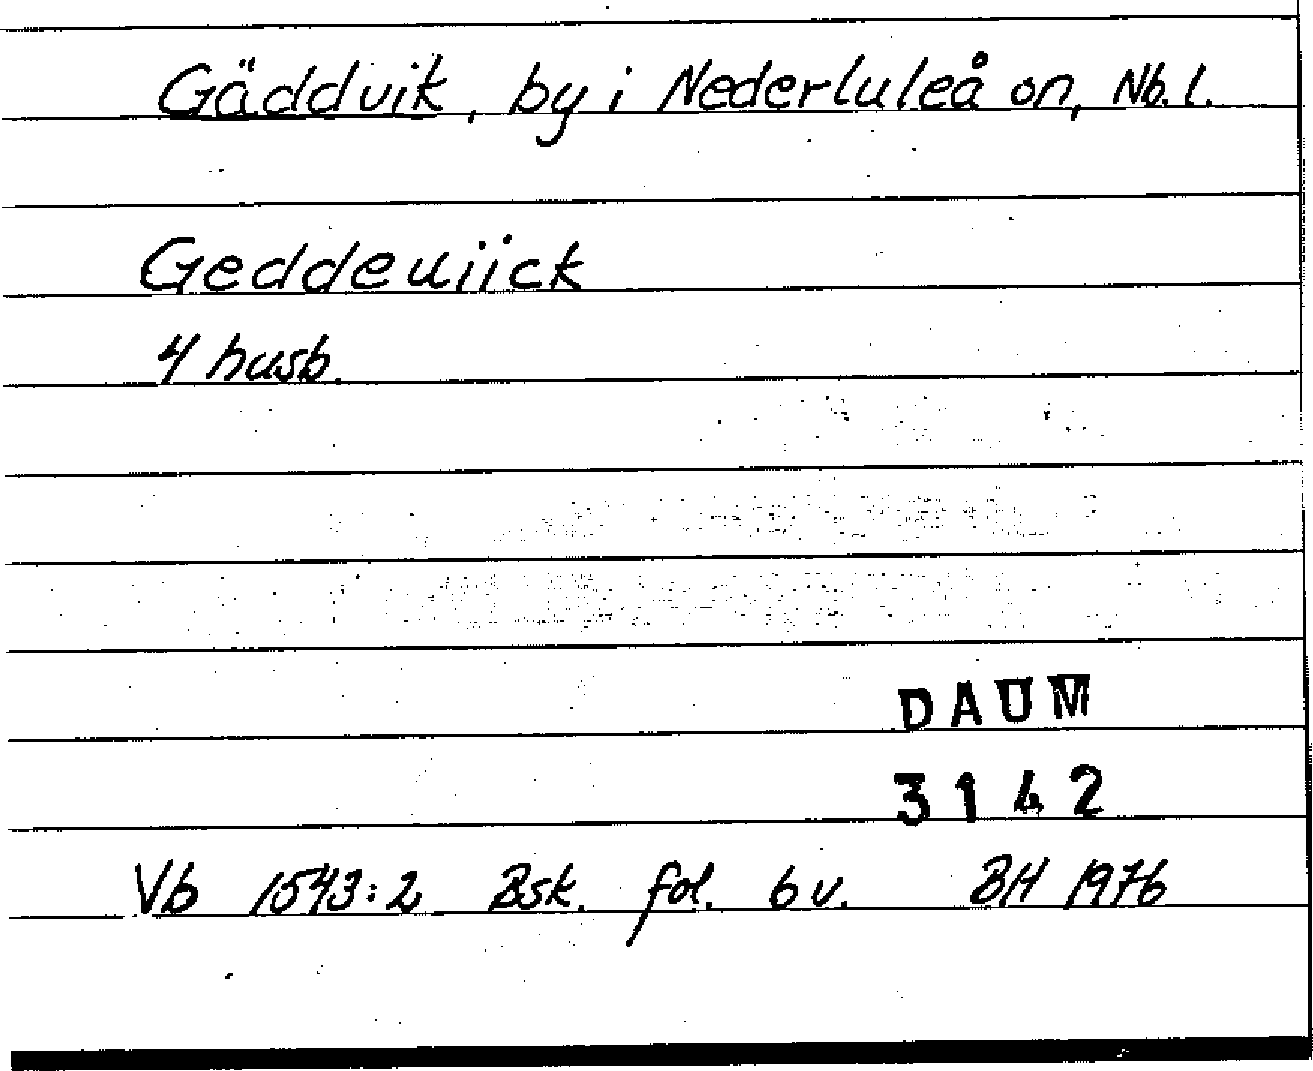 Gäddvik, by i Nederluleå sn, Nb. l.
Geddeuiick
4 husb.
DAUM
3142
Vb 1543:2 Bsk. fol. 6 v. BH 1976